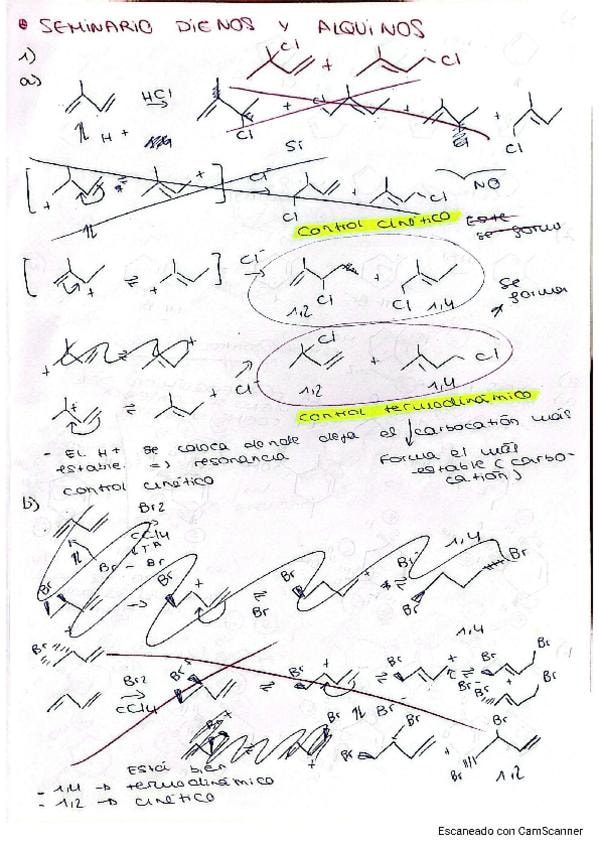 SEMINARIO DIENOS Y ALQUINOS
1)
a)
Cl
+ Cl
HCl
+ Cl + +
Cl Cl Cl
H+
Si
+ + Cl- + Cl NO
Cl
Control cinético Este
se forma
+ + Cl- +
Cl Cl
1,2 1,4
Se forma
Cl
+ + + Cl
Cl- 1,2 1,4
+ +
control termodinámico
- El H+ se coloca donde deja el carbocatión más
estable. => resonancia
Forma el más
estable (carbo-
catión)
control cinético
b)
Br2
CCl4
Br - Br
1,4
Br Br Br Br- Br
+ Br + Br
1,4
Br
Br2 Br Br + Br + Br Br
CCl4 Br- Br
Br Br Br
Br + Br 1,2
Está bien
- 1,4 -> termodinámico
- 1,2 -> cinético
Escaneado con CamScanner